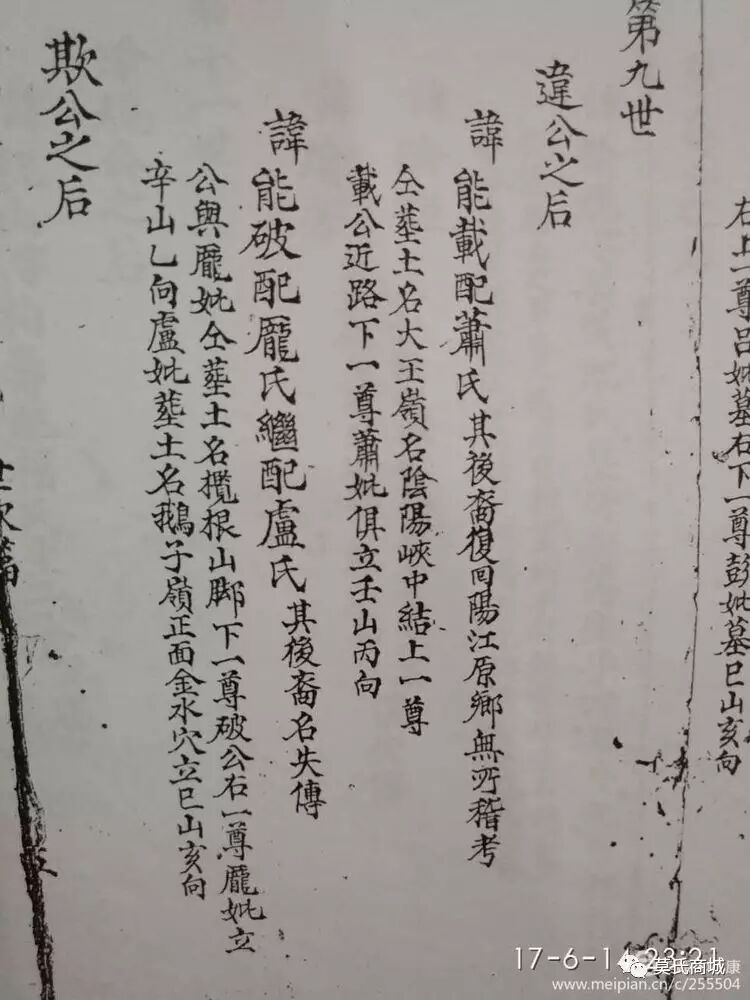 右上一尊呂妣墓右下一尊彭妣墓巳山亥向
第九世
違公之后
諱能載配蕭氏其後裔復回陽江原鄉無所稽考
仝塟土名大王嶺名陰陽峽中結上一尊
載公近路下一尊蕭妣俱立壬山丙向
諱能破配龐氏繼配盧氏其後裔名失傳
公與龐妣仝塟土名攬根山腳下一尊破公右一尊龐妣立
辛山乙向盧妣塟土名鵝子嶺正面金水穴立巳山亥向
欺公之后
世次篇
17-6-1 23:21
莫氏商城
康
www.meipian.cn/c/255504